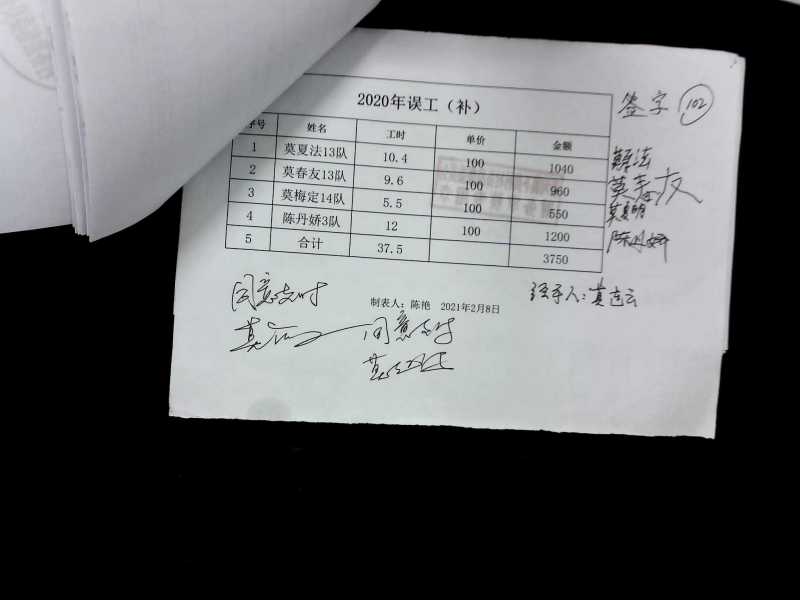 2020年误工（补）
签字 102
序号 姓名 工时 单价 金额
1 莫夏法13队 10.4 100 1040
2 莫春友13队 9.6 100 960
莫春友
3 莫梅定14队 5.5 100 550
4 陈丹娇3队 12 100 1200
陈丹娇
5 合计 37.5 3750
制表人：陈艳 2021年2月8日
经手人：莫连云
同意支付
同意支付